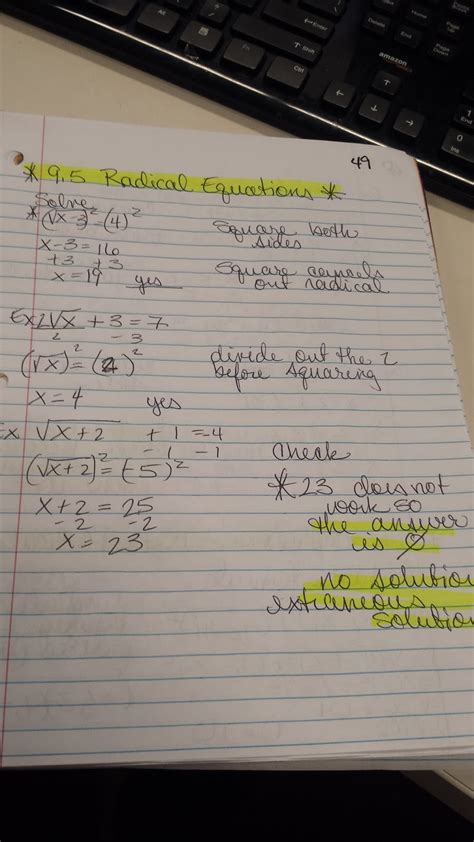 Shift
Ctrl
Fn
Delete
End
Page Down
amazon
1
End
0
Ins
49
* 9.5 Radical Equations *
Solve
* (√x-3)² = (4)² Square both sides
x-3 = 16
+3 +3 Square cancels out radical
x = 19 yes
Ex 2√x + 3 = 7
2 -3
(√x)² = (2)² divide out the 2 before squaring
x = 4 yes
Ex √x+2 + 1 = -4
-1 -1 Check
(√x+2)² = (-5)²
* 23 does not work so the answer is ∅
x+2 = 25
-2 -2
x = 23
no solution
extraneous solution